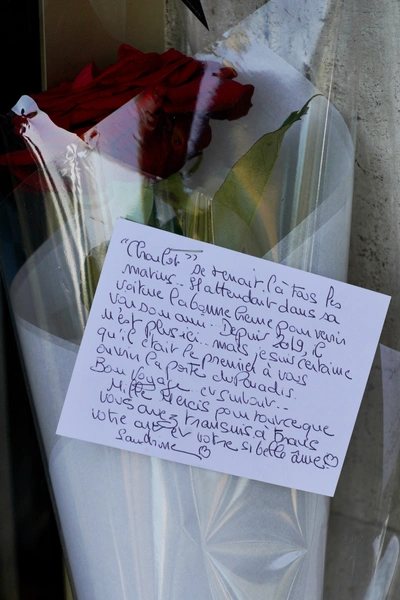 "Charlot" se tenait là tous les
matins.. Il attendait dans sa
voiture la bonne heure pour venir
vous
Depuis 2019, il
n'est plus ici... mais je suis certaine
qu'il était le premier à vous
ouvrir la porte du Paradis.
Bon Voyage et surtout..
Mille Mercis pour tout ce que
vous avez transmis à travers
votre art et votre si belle âme
Sandrine